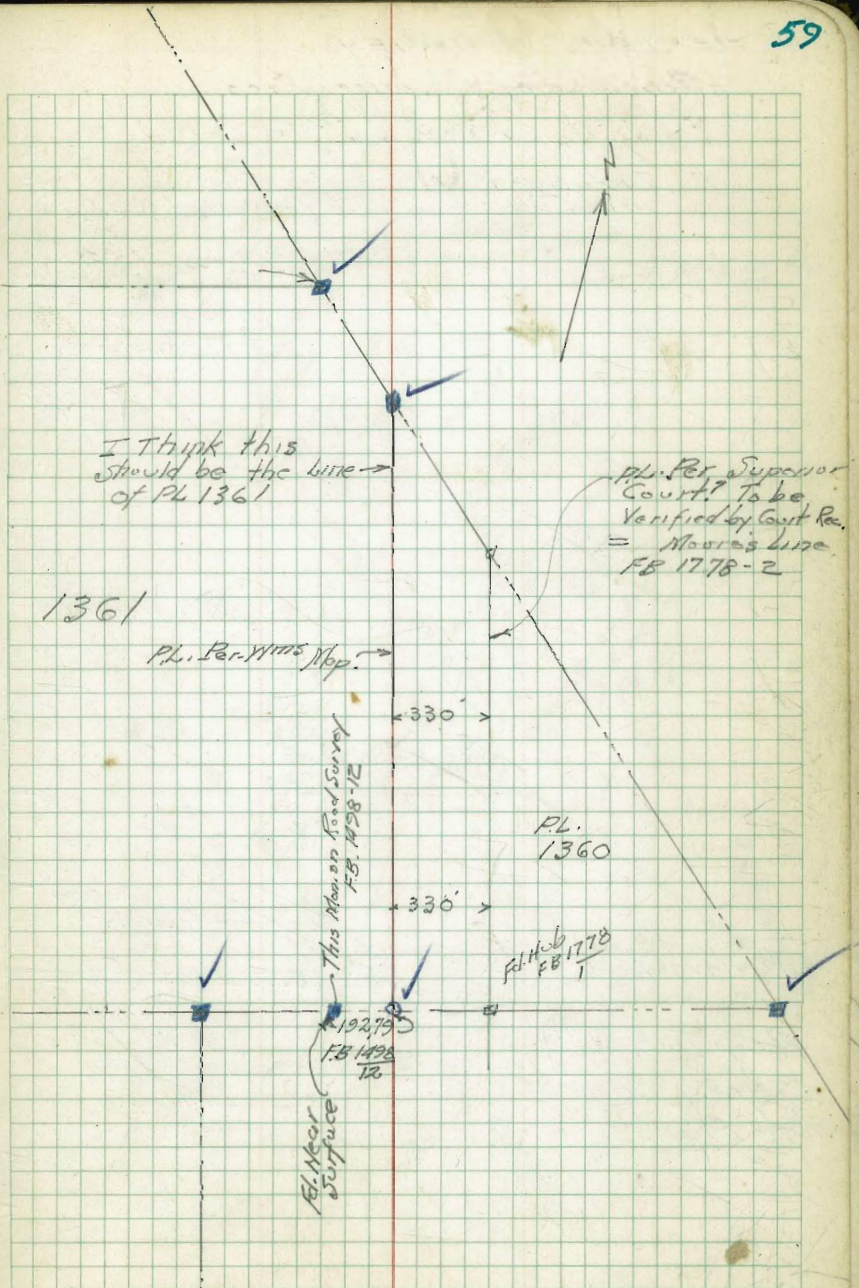 59
N
I Think this
should be the Line
of PL 1361
P.L. Per Superior
Court? To be
Verified by Court Rec.
= Moore's Line
FB 1778-2
1361
P.L. Per Wms Map.
330'
This Mon. on Road Survey
F.B. 1498-12
P.L.
1360
330'
Fd. Hub
FB 1778
1
192.79
F.B 1498
12
Fd. Near
Surface